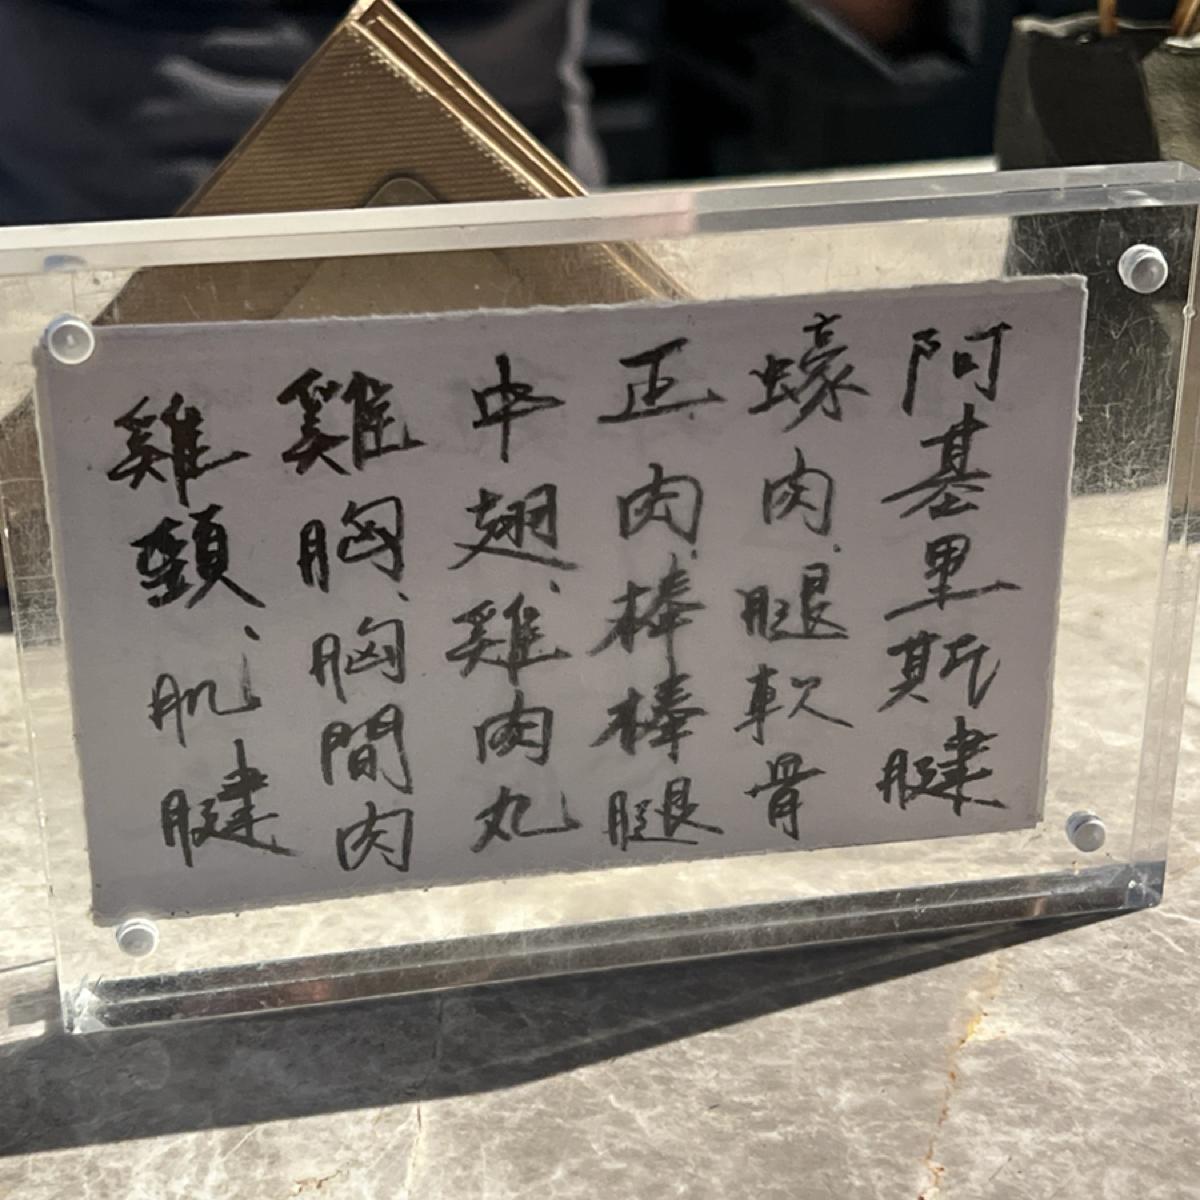 阿基里斯腱
蠔肉、腿軟骨
正肉、棒棒腿
中翅、雞肉丸
雞胸、胸間肉
雞頸、肌腱